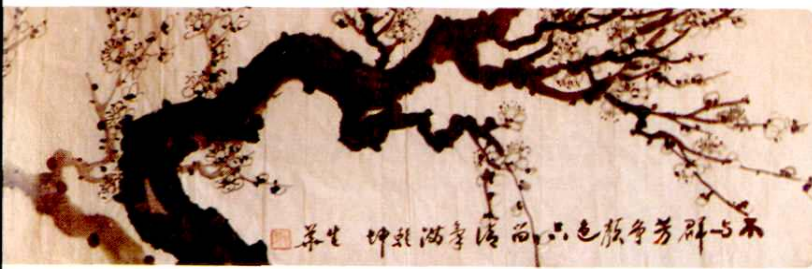 不与群芳争颜色只留清气满乾坤 生荣